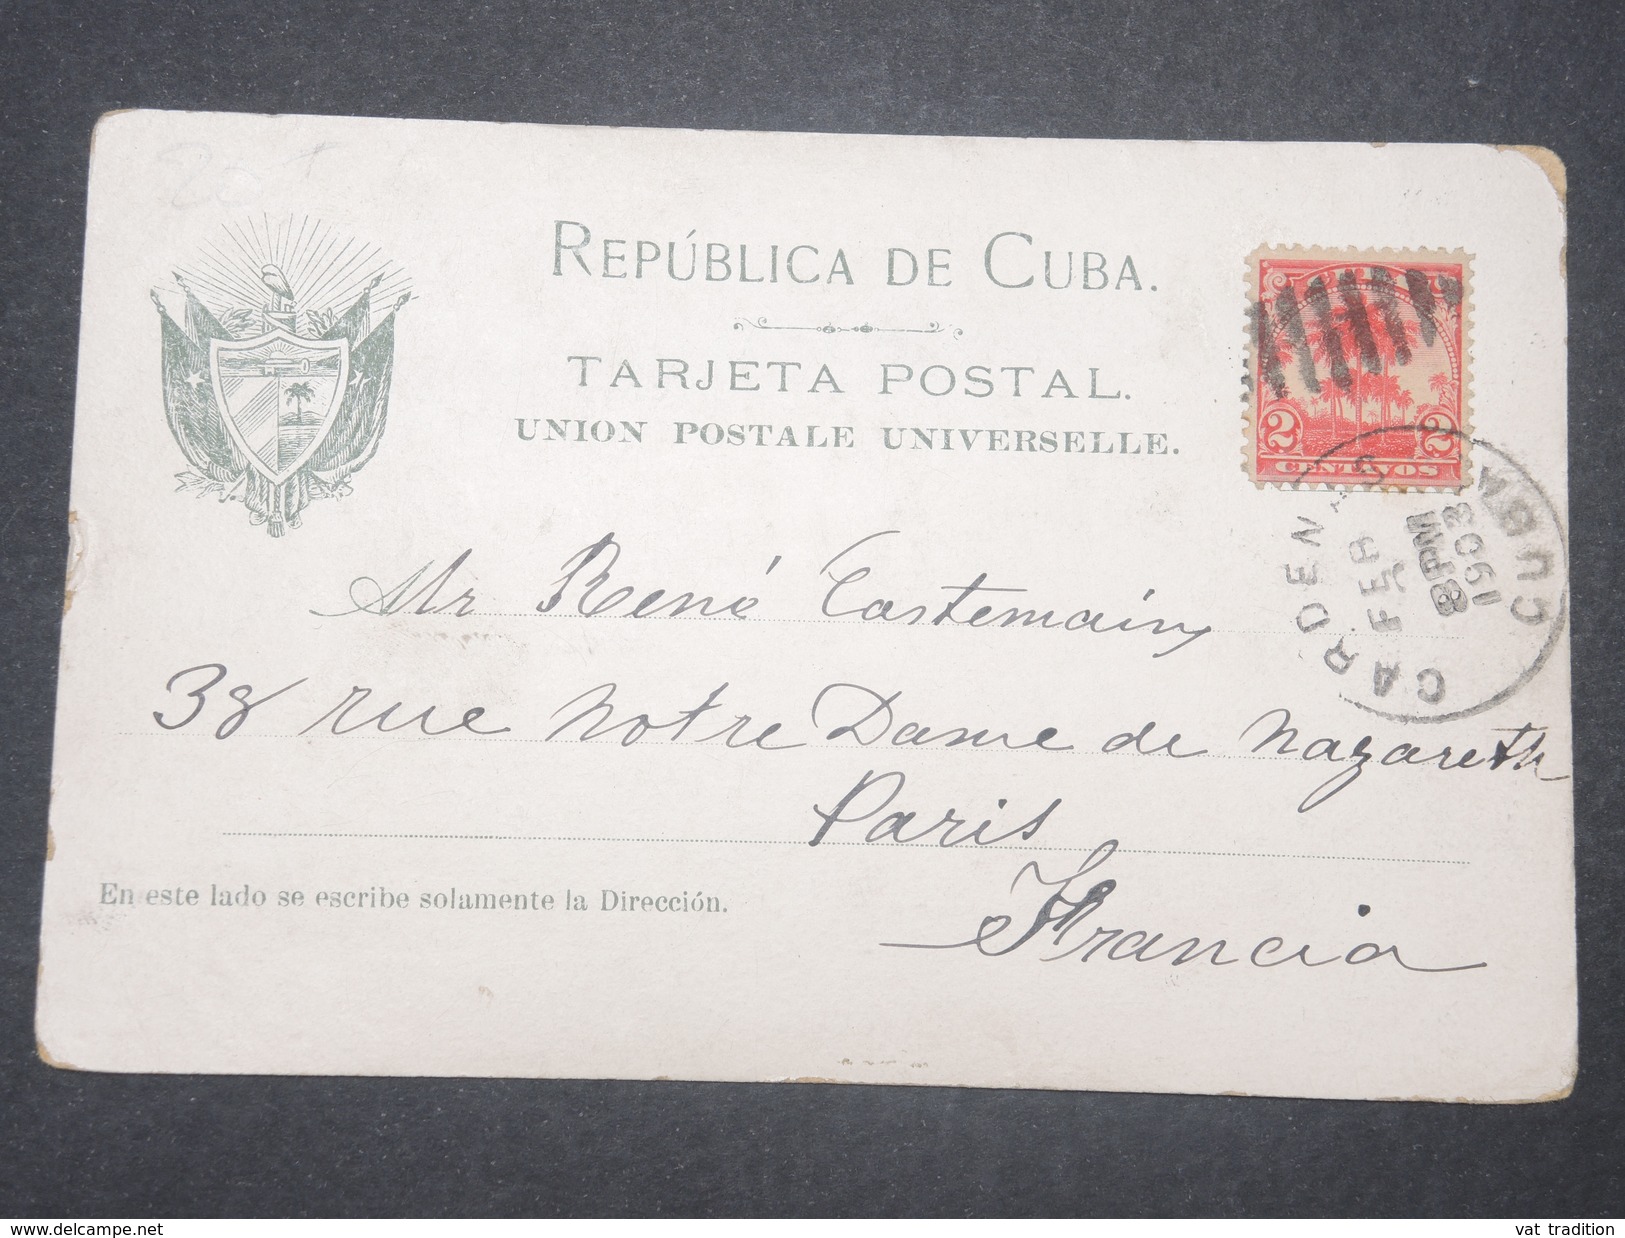 REPÚBLICA DE CUBA.
TARJETA POSTAL.
UNION POSTALE UNIVERSELLE.
2 CENTAVOS 2
CARDENAS CUBA
FEB
8 PM
1903
Mr René Castemain
38 rue Notre Dame de Nazareth
Paris
Francia
En este lado se escribe solamente la Dirección.
www.delcampe.net
vat tradition